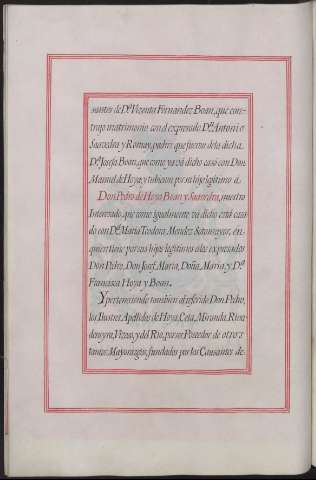 santes de D.ª Vizenta Fernandez Boan, que con-
trajo matrimonio con el expresado D.n Antonio
Saavedra y Romay, padres que fueron dela dicha
D.ª Josefa Boan, que como ya vá dicho casó con Don
Manuel de Hoya, y tubieron por su hijo legitimo á
Don Pedro de Hoya Boan y Saavedra, nuestro
Interesado, que como igualmente vá dicho está casa-
do con D.ª Maria Teodora Mendez Sotomayor, en-
quien tiene por sus hijos legitimos á los expresados
Don Pedro, Don Josef Maria, Doña Maria, y D.ª
Francisca Hoya y Boan.
Y perteneciendo tambien al referido Don Pedro,
los Ilustres Apellidos de Hoya, Cota, Miranda,
deneyra, Vizoso, y del Rio, por ser Posedor de otros
tantos Mayorazgos, fundados por los Causantes de